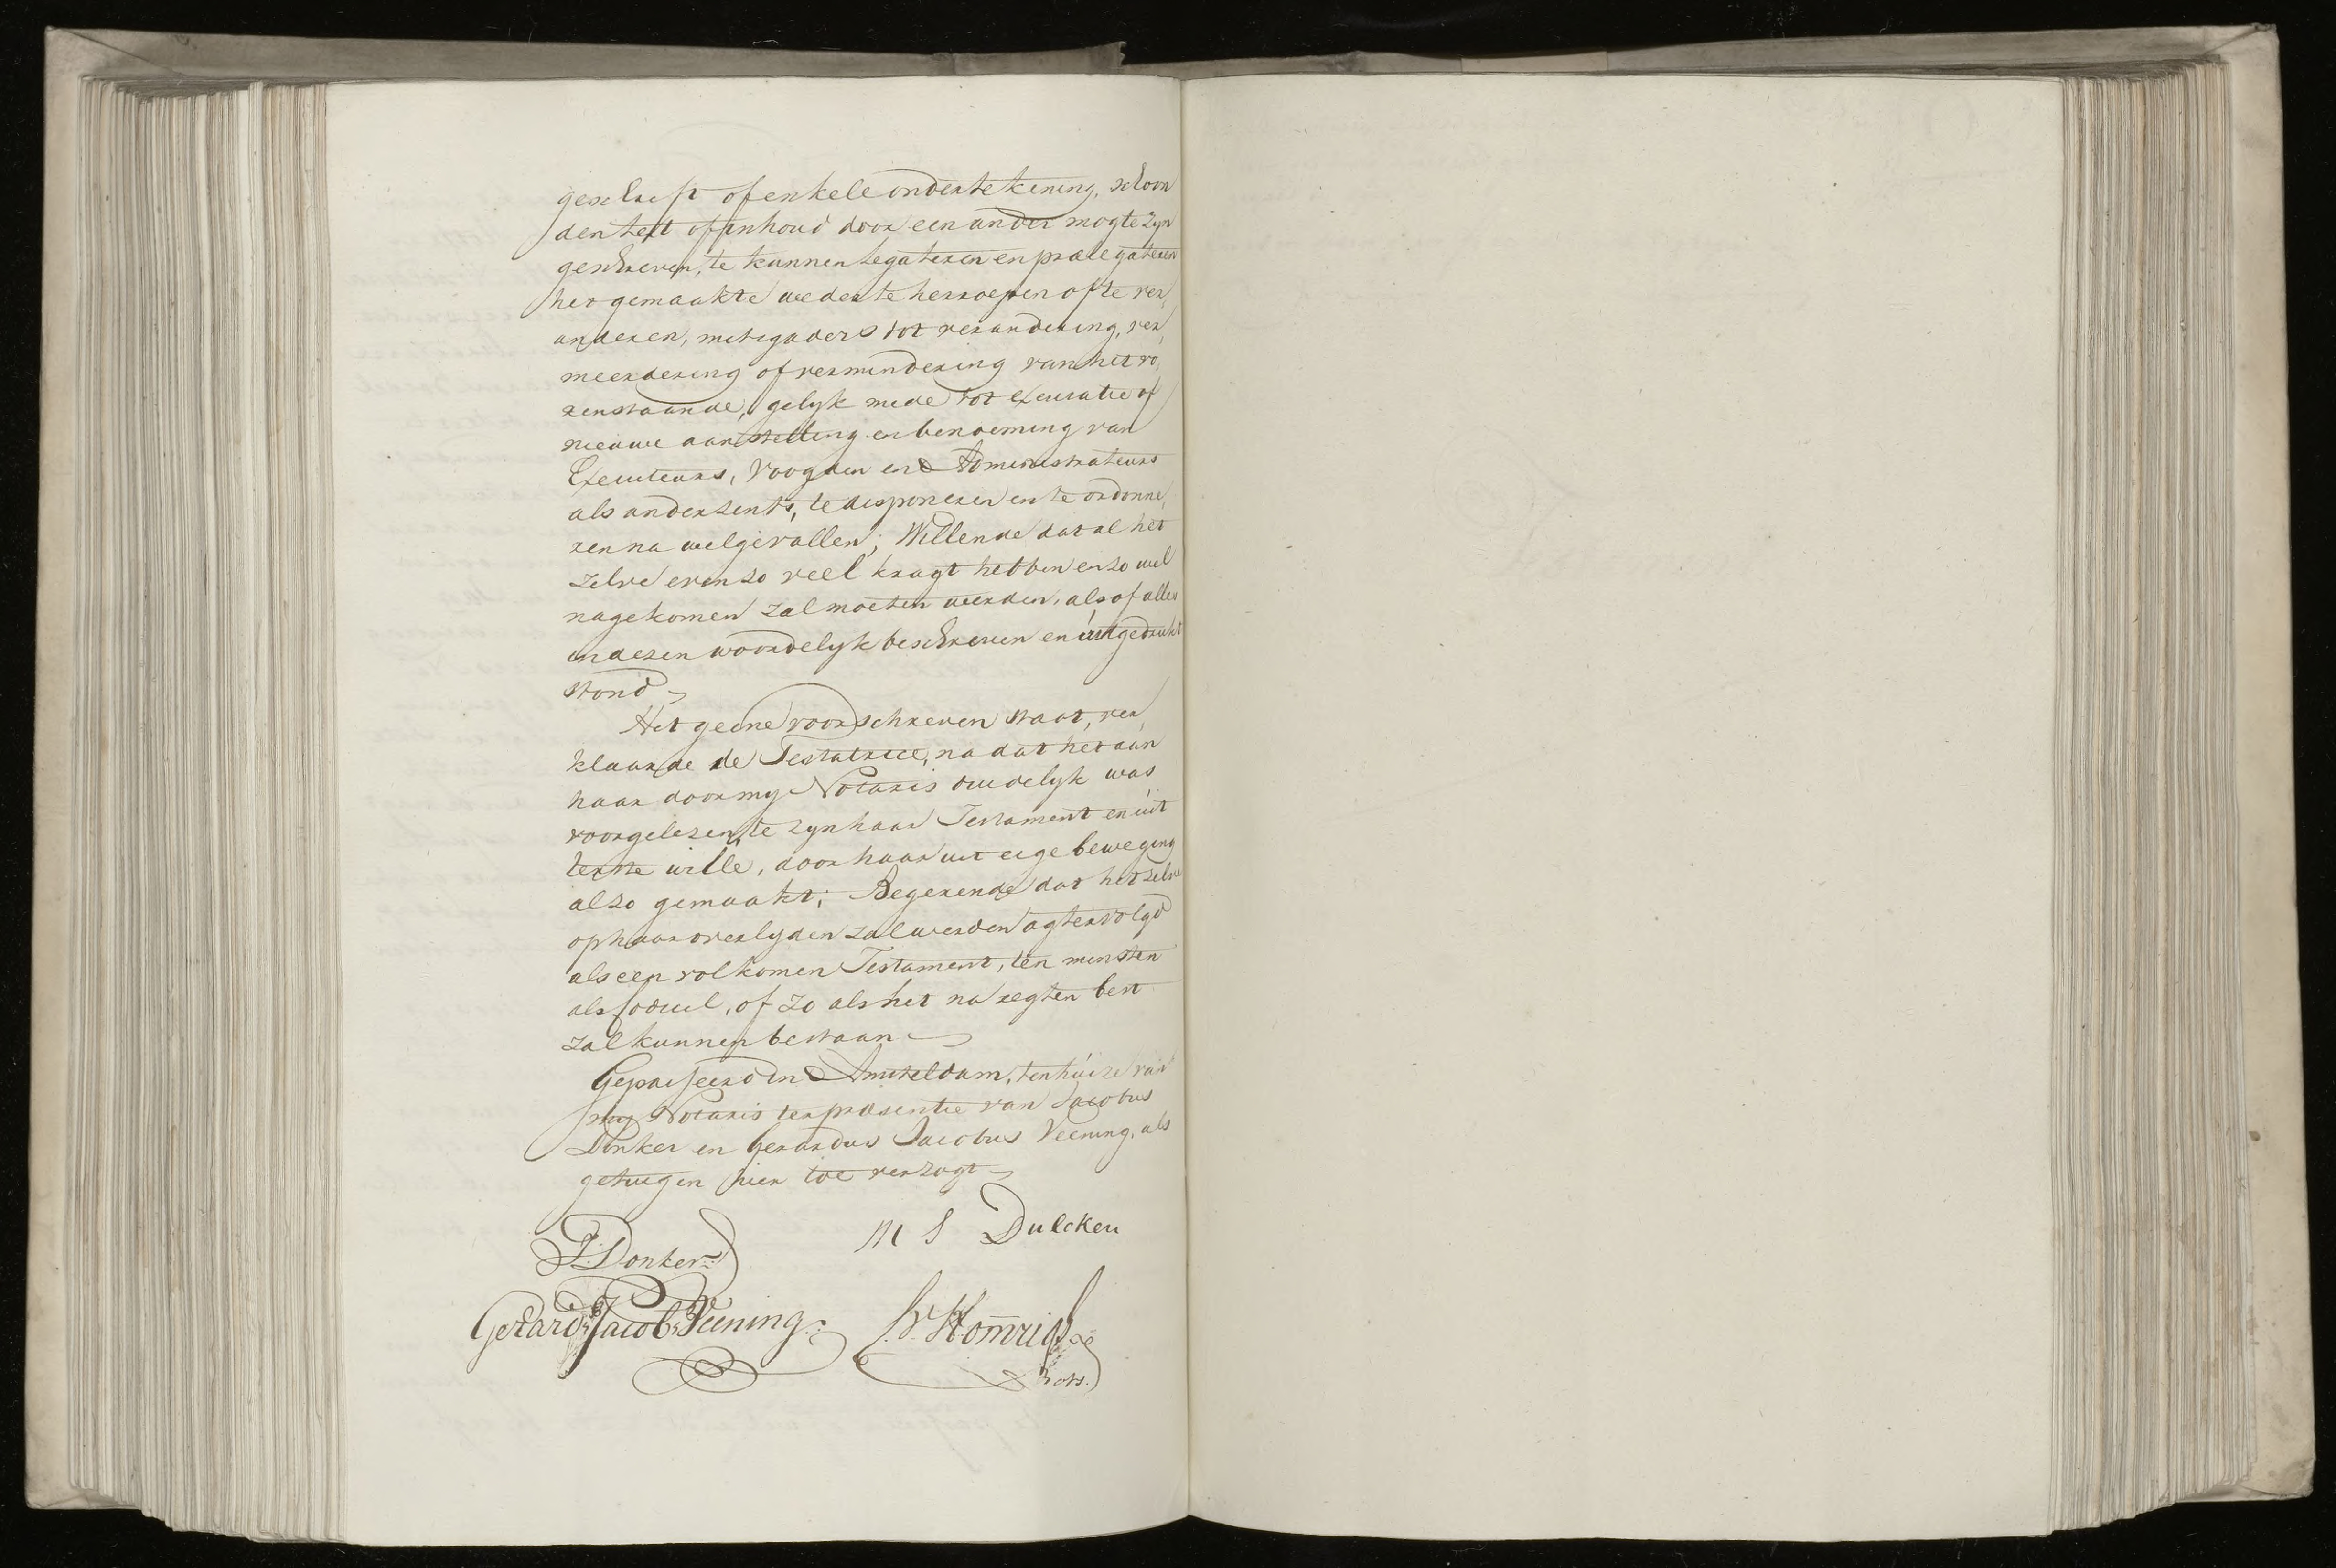 geschrift of enkele ondertekening, schoon
den text of inhoud door een ander mogte zyn
geschreven, te kunnen legateren en praelegateren
het gemaakte weder te herroepen ofte ver,
anderen, mitsgaders tot verandering, ver,
meerdering of vermindering van het vo,
renstaande, gelyk mede tot excusatie of
nieuwe aanstelling en benoeming van
Executeurs, Voogden en Administrateurs
als anderzints, te disponeren en te ordonne,
ren na welgevallen; Willende dat al het
zelve even zo veel kragt hebben en zo wel
nagekomen zal moeten werden, als of alles
in dezen woordelyk beschreven en uitgedrukt
stond
Het geene voorschreven staat, ver,
klaarde de Testatrice, na dat het aan
haar door my Notaris duidelyk was
voorgelezen, te zyn haar Testament en uit
terste wille, door haar uit eige beweging
also gemaakt; Begerende dat het zelve
op haar overlyden zal werden agtervolgd
als een volkomen Testament, ten minsten
als Codicil, of zo als het na regten best
zal kunnen bestaan
Gepasseerd in Amsteldam, ten huize van
my Notaris ter praesentie van Jacobus
Donker en Gerardus Jacobus Veening, als
getuigen hier toe verzogt
M S Dulcken
J: Donker
Gerard: Jacob: Veening:
Hom̄righ
Nots.